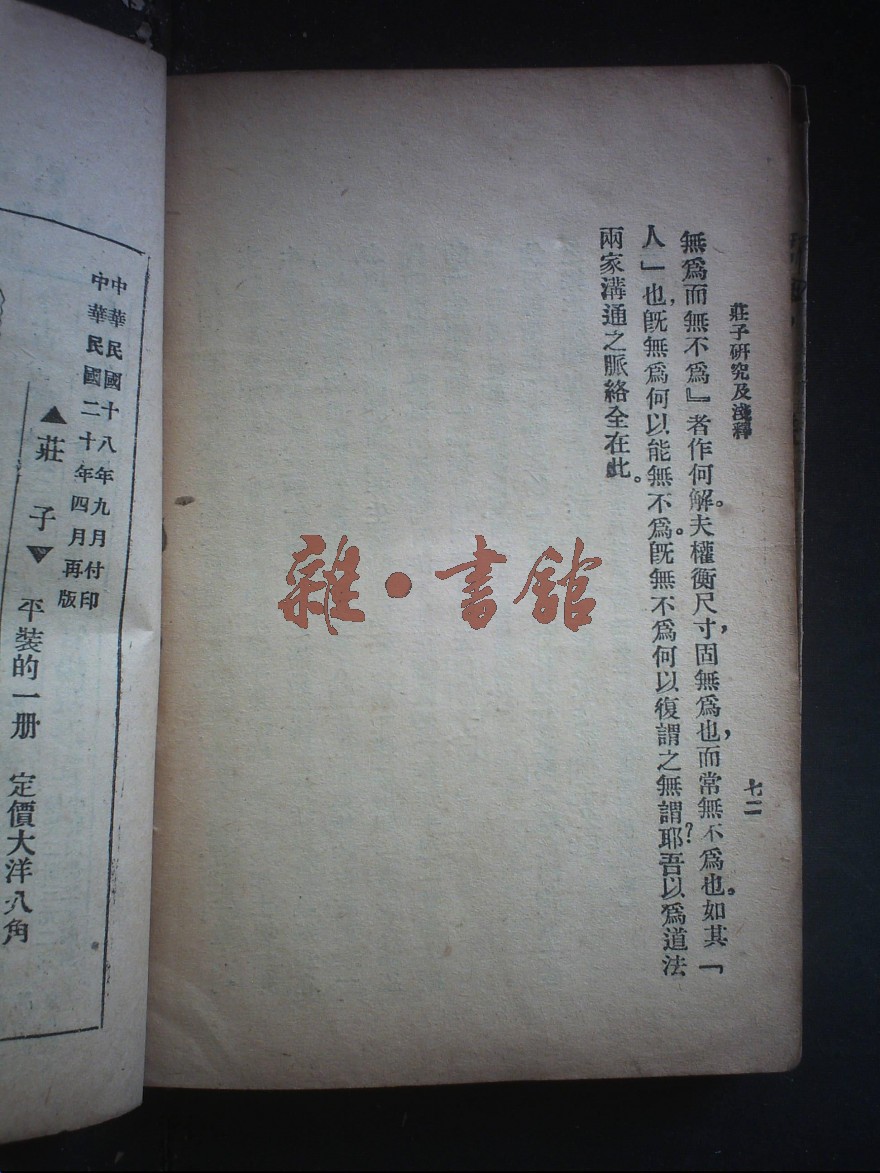 莊子研究及淺釋
七二
無爲而無不爲』者作何解。夫權衡尺寸，固無爲也，而常無不爲也。如其「
人」也，既無爲何以能無不爲。既無不爲何以復謂之無謂耶？吾以爲道法
兩家溝通之脈絡全在此。
雜·書館
中華民國十八年九月付印
中華民國二十年四月再版
▲莊子▼
平裝的一册 定價大洋八角